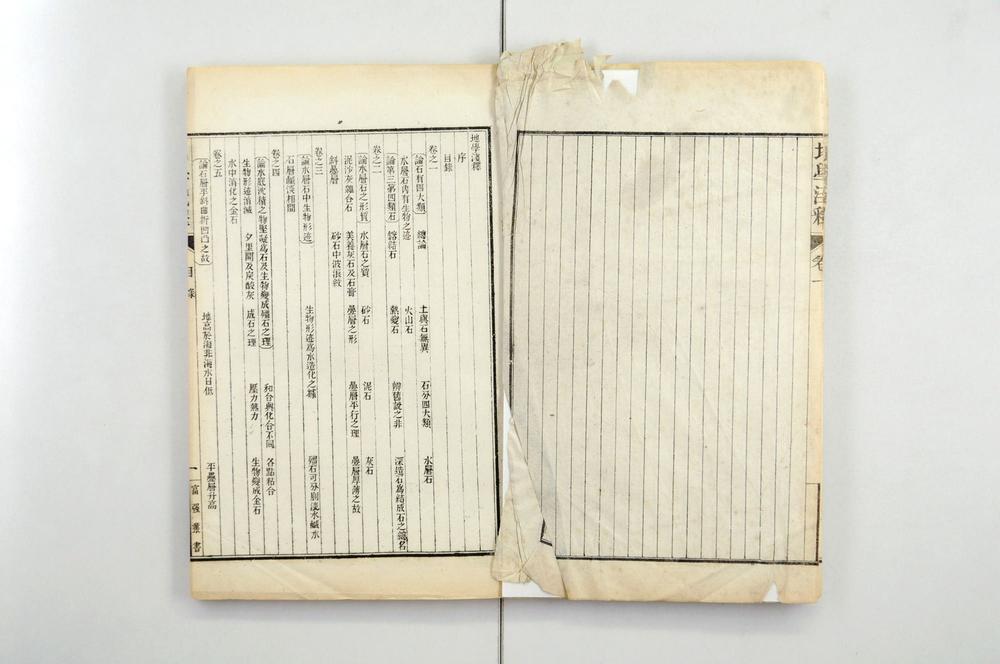 地學淺釋
卷一
地學淺釋
序
目錄
卷之一
論石有四大類 總論 土與石無異 石分四大類 水層石
水層石內有生物之迹 火山石
論第三第四類石 鎔結石 熱變石 辨舊說之非 深造石爲結成石之總名
卷之二
論水層石之形質 水層石之質 砂石 泥石 灰石
泥沙灰雜合石 美養灰石及石膏 疊層之形 疊層平行之理 疊層厚薄之故
斜疊層 砂石中波浪紋
卷之三
論水層石中生物形迹 生物形迹爲水造化之據 殭石可分別淡水鹹水
石層鹹淡相間
卷之四
論水底沈積之物堅凝爲石及生物變成殭石之理 和合與化合不同 各點粘合
生物形迹消滅 夕里開及炭酸灰 成石之理 壓力熱力 生物變成金石
水中消化之金石
卷之五
論石層平斜曲折凹凸之故 地高於海非海水日低 平疊層升高
目錄
一
富強叢書